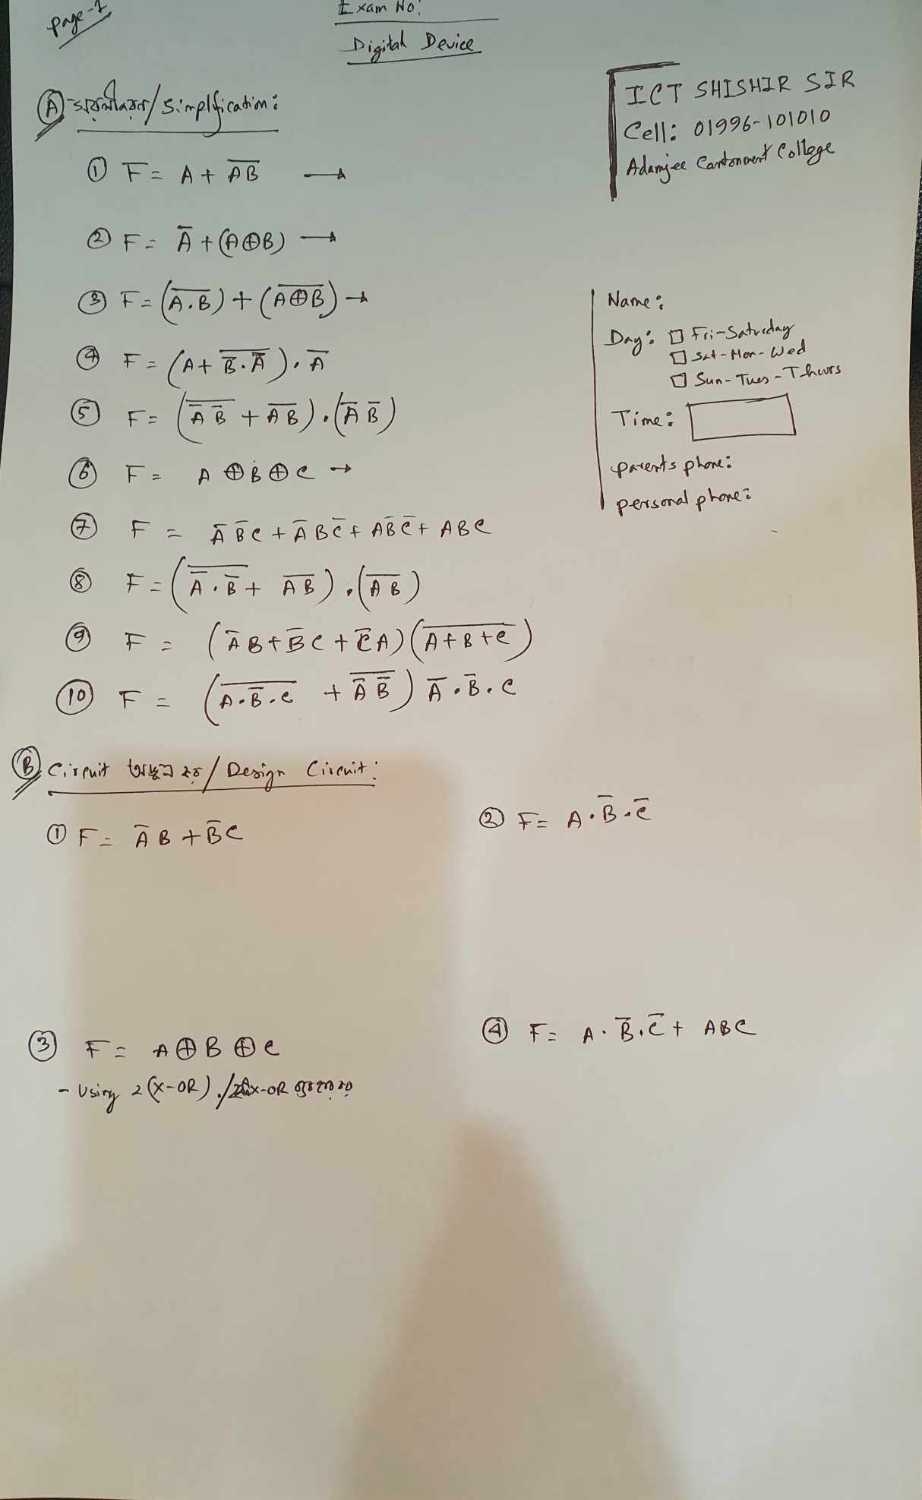 page-1
Exam No:
Digital Device
ICT SHISHIR SIR
Cell: 01996-101010
Adamjee Cantonment College
Ⓐ সরলীকরণ/Simplification:
① F = A + A̅B̅
② F = A̅ + (A⊕B)
③ F = (A̅.̅B̅) + (A̅⊕̅B̅)
④ F = (A + B̅.A̅̅).A̅
⑤ F = (A̅̅ B̅̅ + A̅B̅).(A̅ B̅)
⑥ F = A⊕B⊕C
⑦ F = A̅ B̅ C + A̅ B C̅ + A B̅ C̅ + ABC
⑧ F = (A̅̅.B̅̅ + A̅B̅).(A̅B̅)
⑨ F = (A̅B + B̅C + C̅A)(A̅+̅B̅+̅C̅)
⑩ F = (A̅.̅B̅̅.̅C̅ + A̅̅ B̅̅) A̅.B̅.C
Name:
Day: □ Fri-Saturday
□ Sat-Mon-Wed
□ Sun-Tues-Thurs
Time:
parents phone:
personal phone:
Ⓑ Circuit অঙ্কন কর/Design Circuit:
① F = A̅B + B̅C
② F = A.B̅.C̅
③ F = A⊕B⊕C
- Using 2(X-OR)./ X-OR
④ F = A.B̅.C̅ + ABC